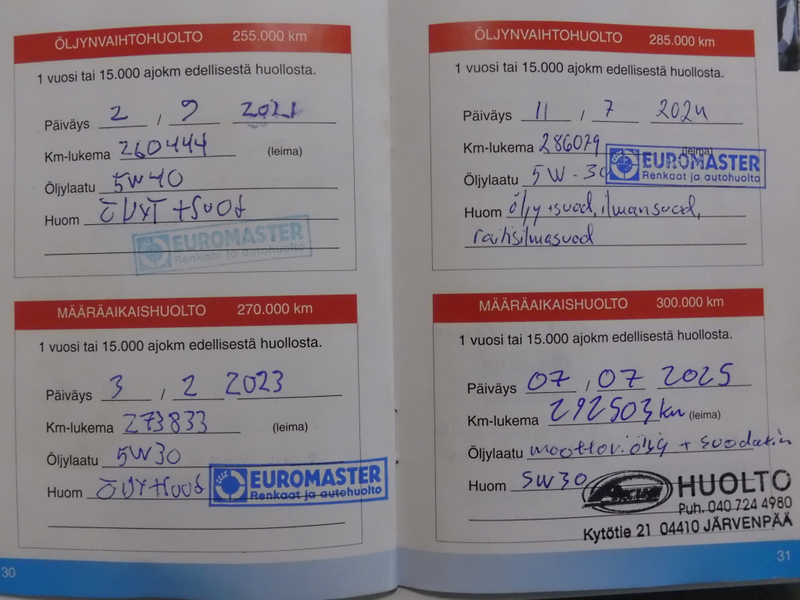 ÖLJYNVAIHTOHUOLTO 255.000 km
1 vuosi tai 15.000 ajokm edellisestä huollosta.
Päiväys 2 / 9 2021
Km-lukema 260444 (leima)
Öljylaatu 5W40
Huom ÖLJYT + SUOD
EUROMASTER
Renkaat ja autohuolto
MÄÄRÄAIKAISHUOLTO 270.000 km
1 vuosi tai 15.000 ajokm edellisestä huollosta.
Päiväys 3 / 2 2023
Km-lukema 273833 (leima)
Öljylaatu 5W30
Huom ÖLJYT+SUOD
EUROMASTER
Renkaat ja autohuolto
30
ÖLJYNVAIHTOHUOLTO 285.000 km
1 vuosi tai 15.000 ajokm edellisestä huollosta.
Päiväys 11 / 7 2024
Km-lukema 286079 (leima)
Öljylaatu 5W-30
EUROMASTER
Renkaat ja autohuolto
Huom öljy+suod, ilmansuod,
raitisilmasuod
MÄÄRÄAIKAISHUOLTO 300.000 km
1 vuosi tai 15.000 ajokm edellisestä huollosta.
Päiväys 07 / 07 2025
Km-lukema 292503km (leima)
Öljylaatu moottoriöljy + suodatin
Huom 5W30
HUOLTO
Puh. 040 724 4980
Kytötie 21 04410 JÄRVENPÄÄ
31